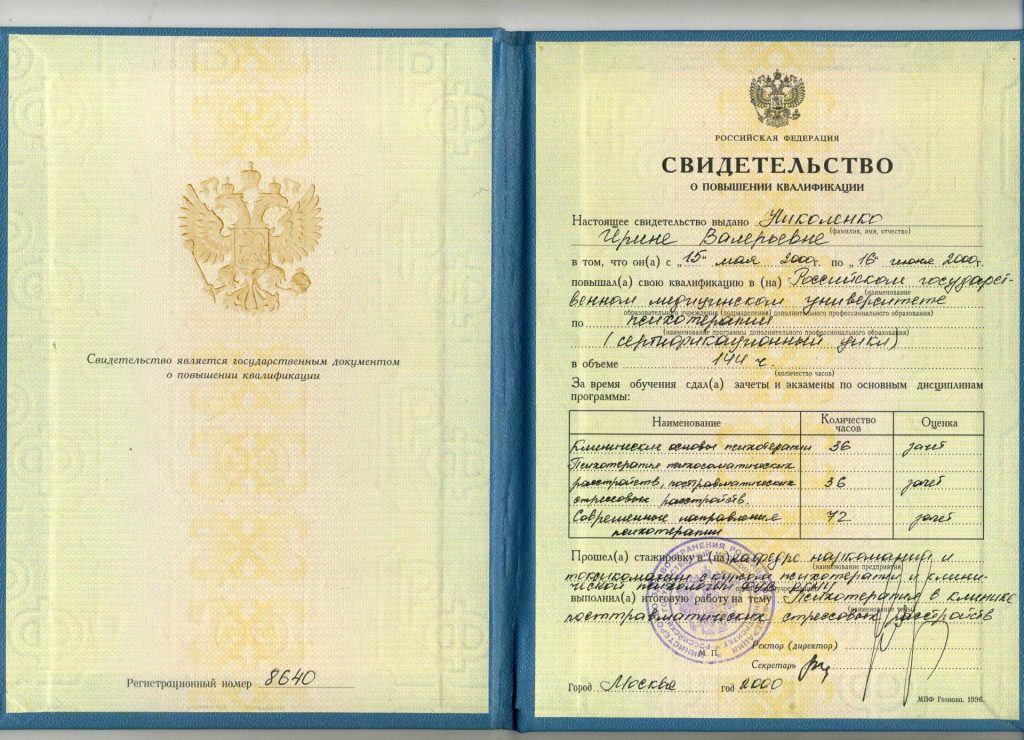 Свидетельство является государственным документом
о повышении квалификации
Регистрационный номер 8640
РОССИЙСКАЯ ФЕДЕРАЦИЯ
СВИДЕТЕЛЬСТВО
О ПОВЫШЕНИИ КВАЛИФИКАЦИИ
Настоящее свидетельство выдано Николенко
(фамилия, имя, отчество)
Ирине Валерьевне
в том, что он(а) с „15“ мая 2000г. по „16“ июня 2000г.
повышал(а) свою квалификацию в (на) Российском государст-
(наименование
венном медицинском университете
образовательного учреждения (подразделения) дополнительного профессионального образования)
по психотерапии
(наименование программы дополнительного профессионального образования)
(сертификационный цикл)
в объеме 144 ч.
(количество часов)
За время обучения сдал(а) зачеты и экзамены по основным дисциплинам
программы:
Наименование Количество часов Оценка
Клинические основы психотерапии 36 зачет
Психотерапия психосоматических
расстройств, посттравматических 36 зачет
стрессовых расстройств.
Современные направления 72 зачет
психотерапии
Прошел(а) стажировку в (на) кафедре наркомании и
(наименование предприятия,
токсикомании с курсом психотерапии и клини-
ческой психологии ФУВ РГМУ
выполнил(а) итоговую работу на тему Психотерапия в клинике
(наименование темы)
посттравматических стрессовых расстройств
М. П.
Ректор (директор)
Секретарь
Город Москва год 2000
МПФ Гознака. 1996.